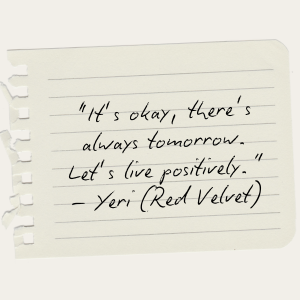 "It's okay, there's
always tomorrow.
Let's live positively."
– Yeri (Red Velvet)